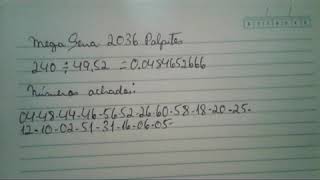 Mega Sena 2036 Palpites
240 ÷ 49,52 = 0.0484652666
Números achados:
04-48-44-46-56-52-26-60-58-18-20-25-
12-10-02-51-31-16-06-05-